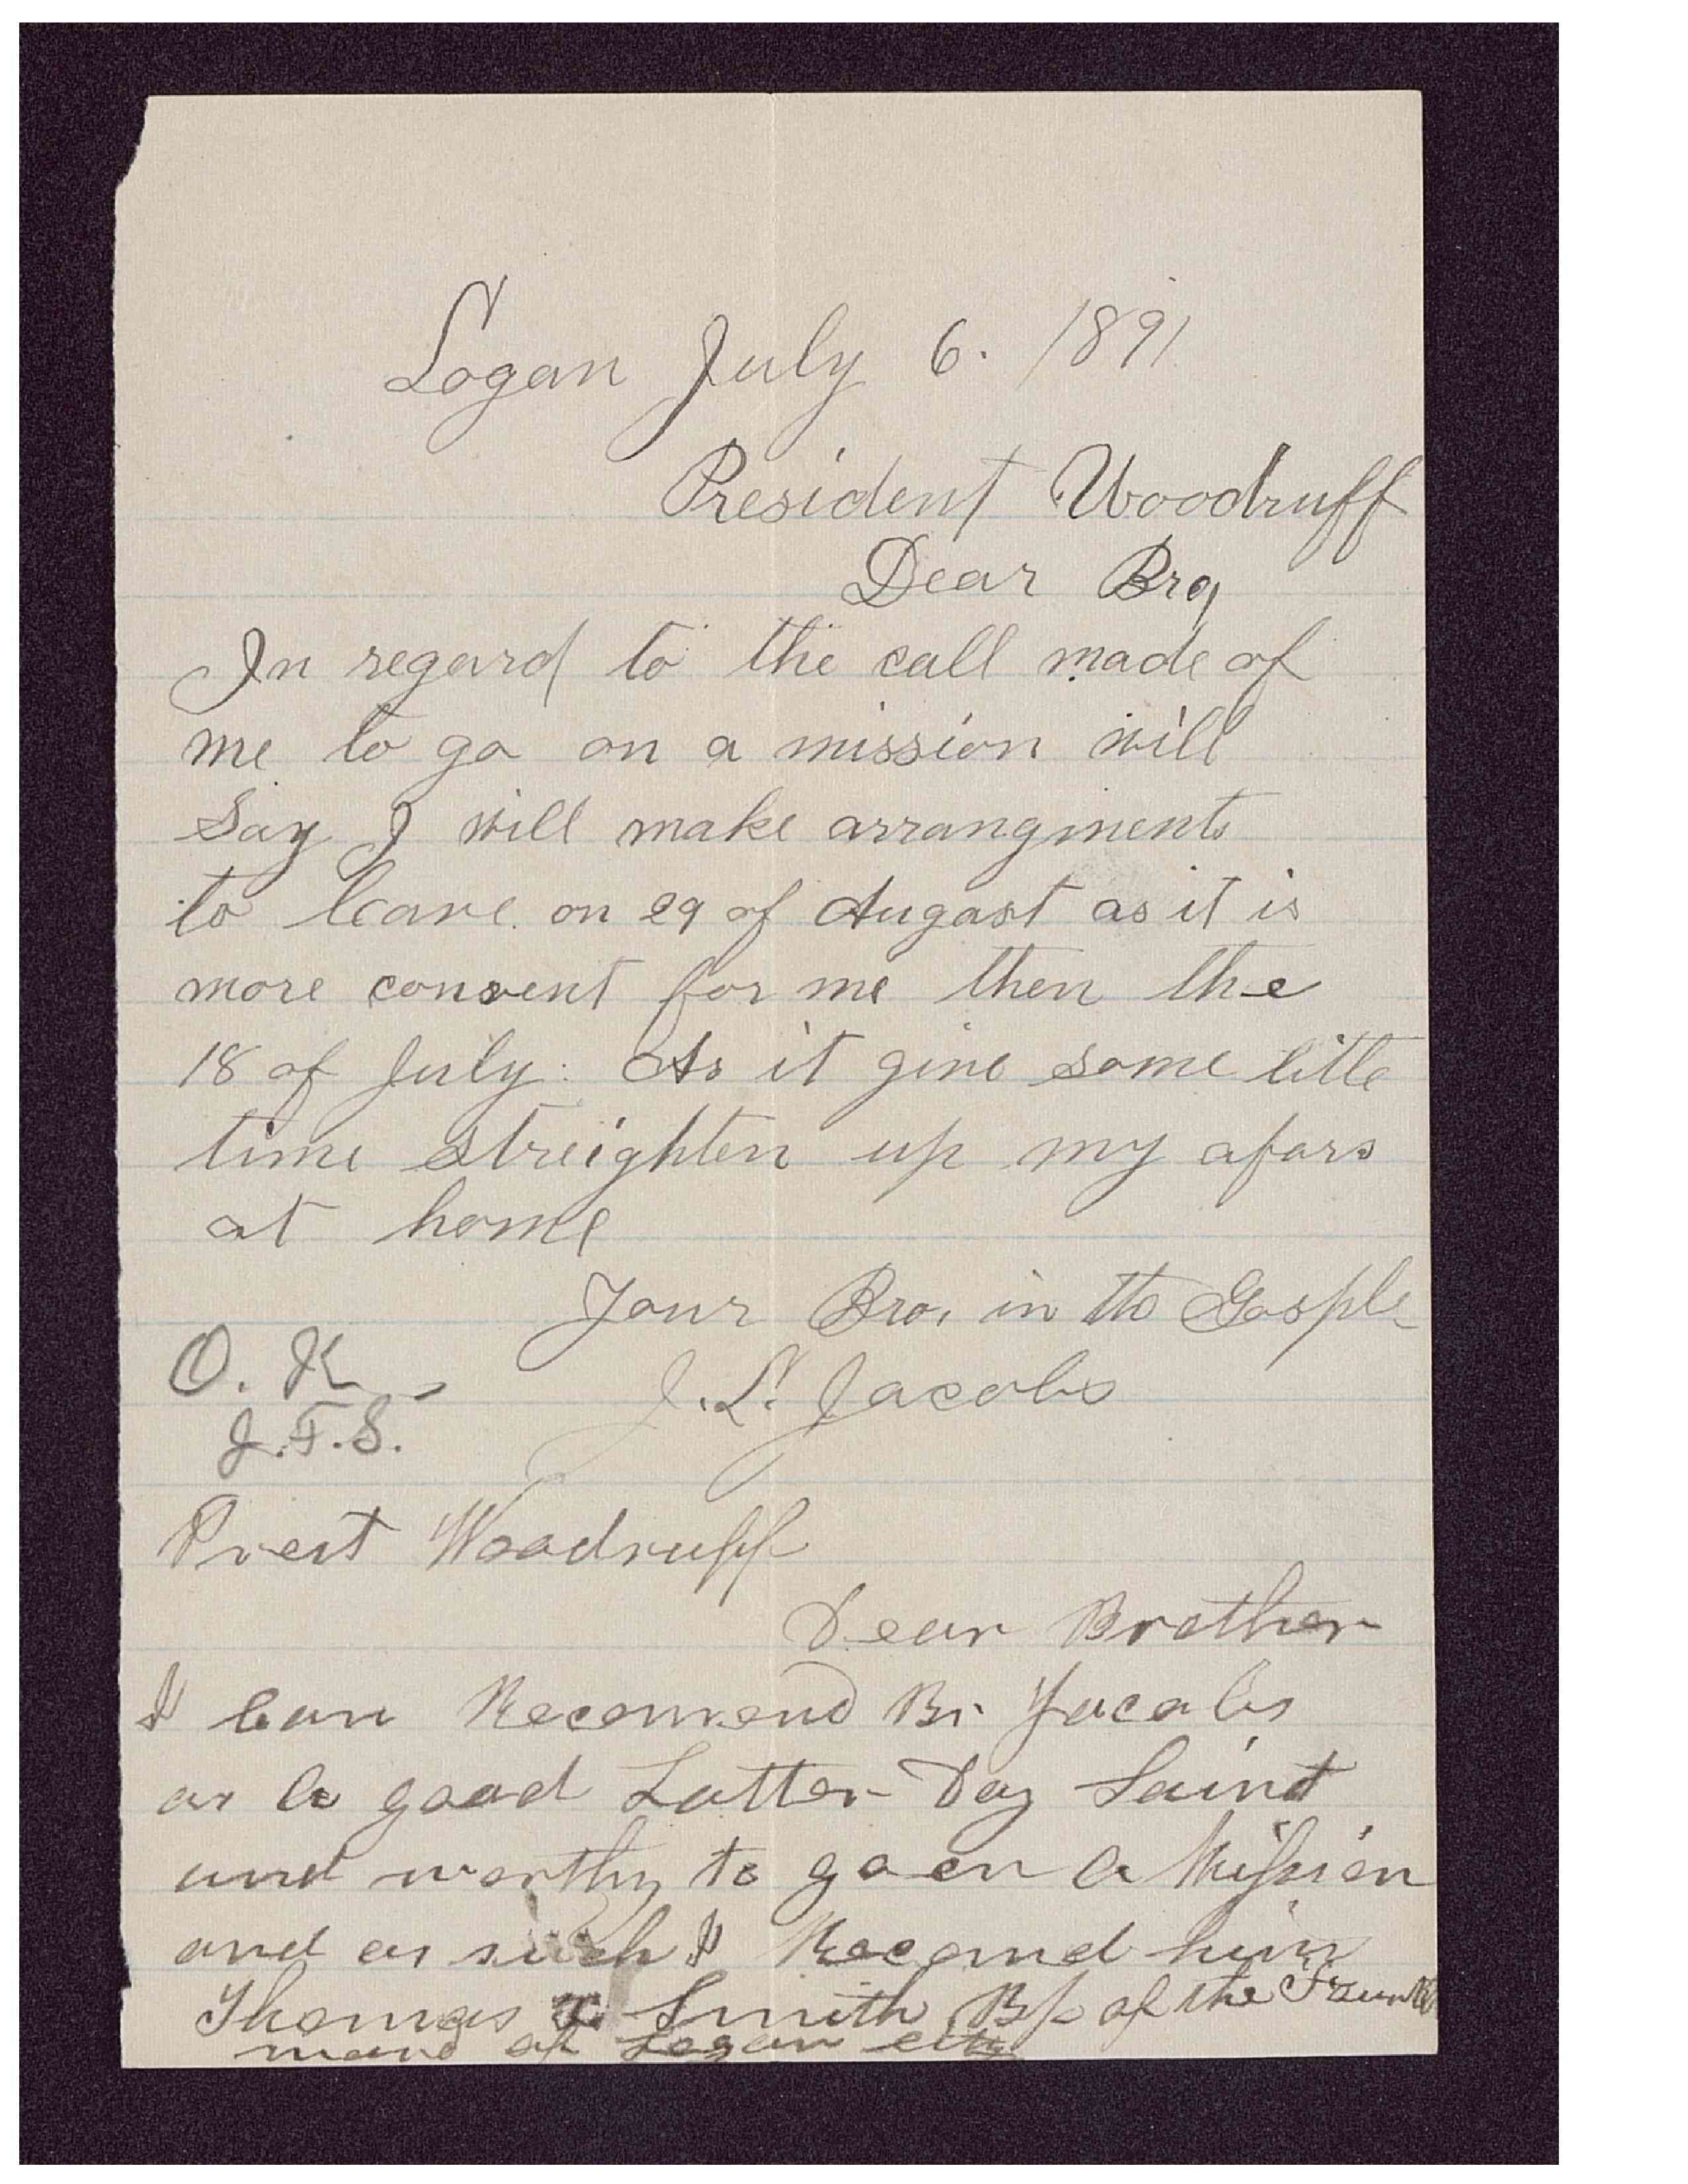 Logan July 6. 1891
President Woodruff
Dear Bro,
In regard to the call made of
me to go on a mission will
Say I will make arrangments
to leave on 29 of Augast as it is
more convent for me then the
18 of July. As it give some little
time streighten up my afars
at home
Your Bro, in the Gosple
J. L. Jacobs
O. K.
J. F. S.
Prest Woodruff
Dear Brother
I Can Recomend Br Jacobs
as a good Latter Day Saint
and worthy to go on a Mission
and as such I Recomd him
Thomas X Smith Bp of the Fourth
ward of Logan city